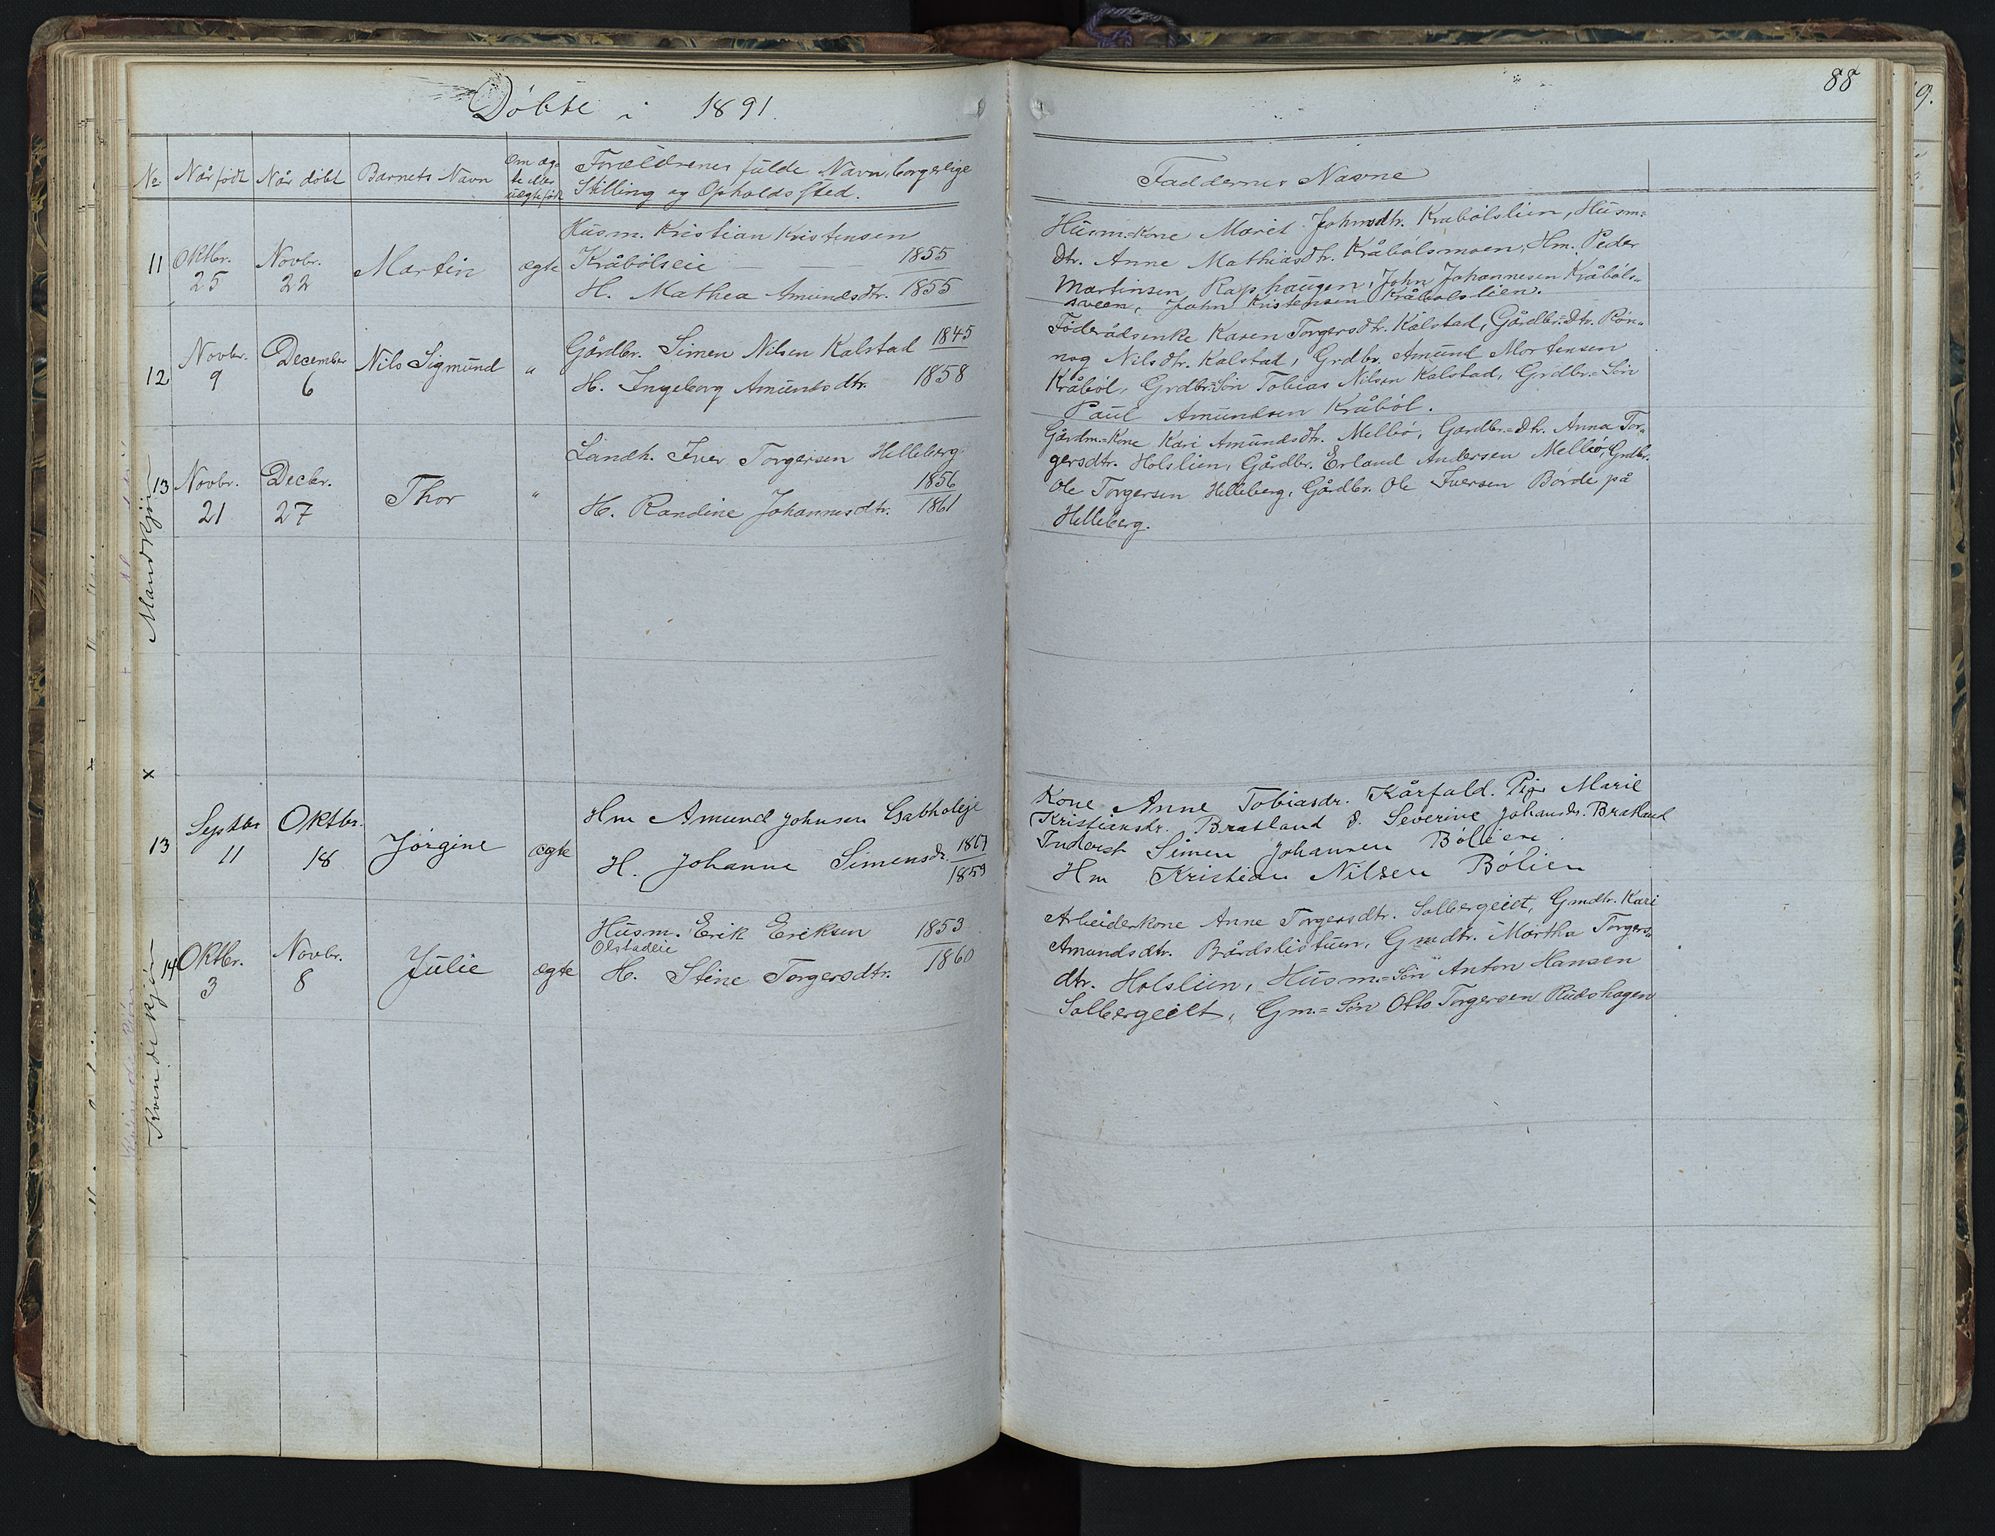 88
Døbte i 1891.
No Når født Når døbt Barnets Navn Om æg-te eller uægte født Forældrenes fulde Navn, borgerlige Stilling og Opholdssted. Faddernes Navne
Mandkjøn
11 Oktbr. 25 Novbr. 22 Martin ægte
Husm. Kristian Kristensen
Kråbølseie 1855
H. Mathea Amundsdtr. 1855
Husm.=Kone Marit Johnsdtr. Kråbølslien, Husm=
dtr. Anne Mathiasdtr. Kråbølsmoen, Hm. Peder
Martinsen Rapphaugen, John Johannesen Kråbøls-
sveen, John Kristensen Kråbølslien.
12 Novbr. 9 December 6 Nils Sigmund "
Gårdbr. Simen Nilsen Kalstad 1845
H. Ingeborg Amundsdtr. 1858
Føderådsenke Karen Torgersdtr. Kalstad, Gårdbr.=Dtr. Røn-
nog Nilsdtr. Kalstad, Grdbr. Amund Mortensen
Kråbøl, Grdbr.=Søn Tobias Nilsen Kalstad, Grdbr.=Søn
Paul Amundsen Kråbøl.
13 Novbr. 21 Decbr. 27 Thor "
Landh. Iver Torgersen Helleberg
1856
H. Randine Johannesdtr. 1861
Gårdm.=Kone Kari Amundsdtr. Mellbø, Gardbr.=Dtr. Anna Tor-
gersdtr. Holslien, Gårdbr. Erland Andersen Mellbø, Grdbr.
Ole Torgersen Helleberg, Gårdbr. Ole Iversen Børde på
Helleberg.
x
Kvindekjøn
13 Septbr 11 Oktbr. 18 Jørgine ægte
Hm Amund Johnsen Gabholeje
H. Johanne Simensdr. 1859
Kone Anne Tobiasdr. Kårfald. Pige Marie
Kristiansdr. Bratland d. Severine Johansdr. Bratland
Inderst Simen Johansen Bølien.
Hm Kristian Nilsen Bølien
14 Oktbr. 3 Novbr. 8 Julie ægte
Husm. Erik Eriksen 1853
Olstadeie
H. Stine Torgersdtr. 1860
Arbeiderkone Anne Torgersdtr. Solbergeiet, Gmdtr. Kari
Amundsdtr. Bårdslistuen, Gmdtr. Martha Torgers-
dtr. Holslien, Husm.=Søn Anton Hansen
Solbergeiet, Gm.=Søn Otto Torgersen Rudshagen